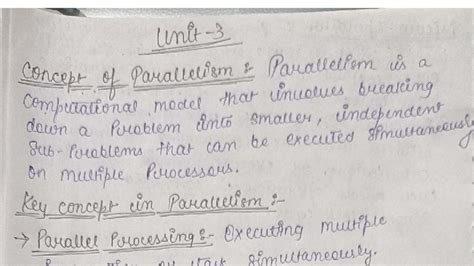 Unit-3
Concept of Parallelism : Parallelism is a
Computational model that involves breaking
down a Problem into smaller, independent
Sub-Problems that can be executed simultaneously
on multiple Processors.
Key concept in Parallelism :-
→ Parallel Processing :- Executing multiple
simultaneously.